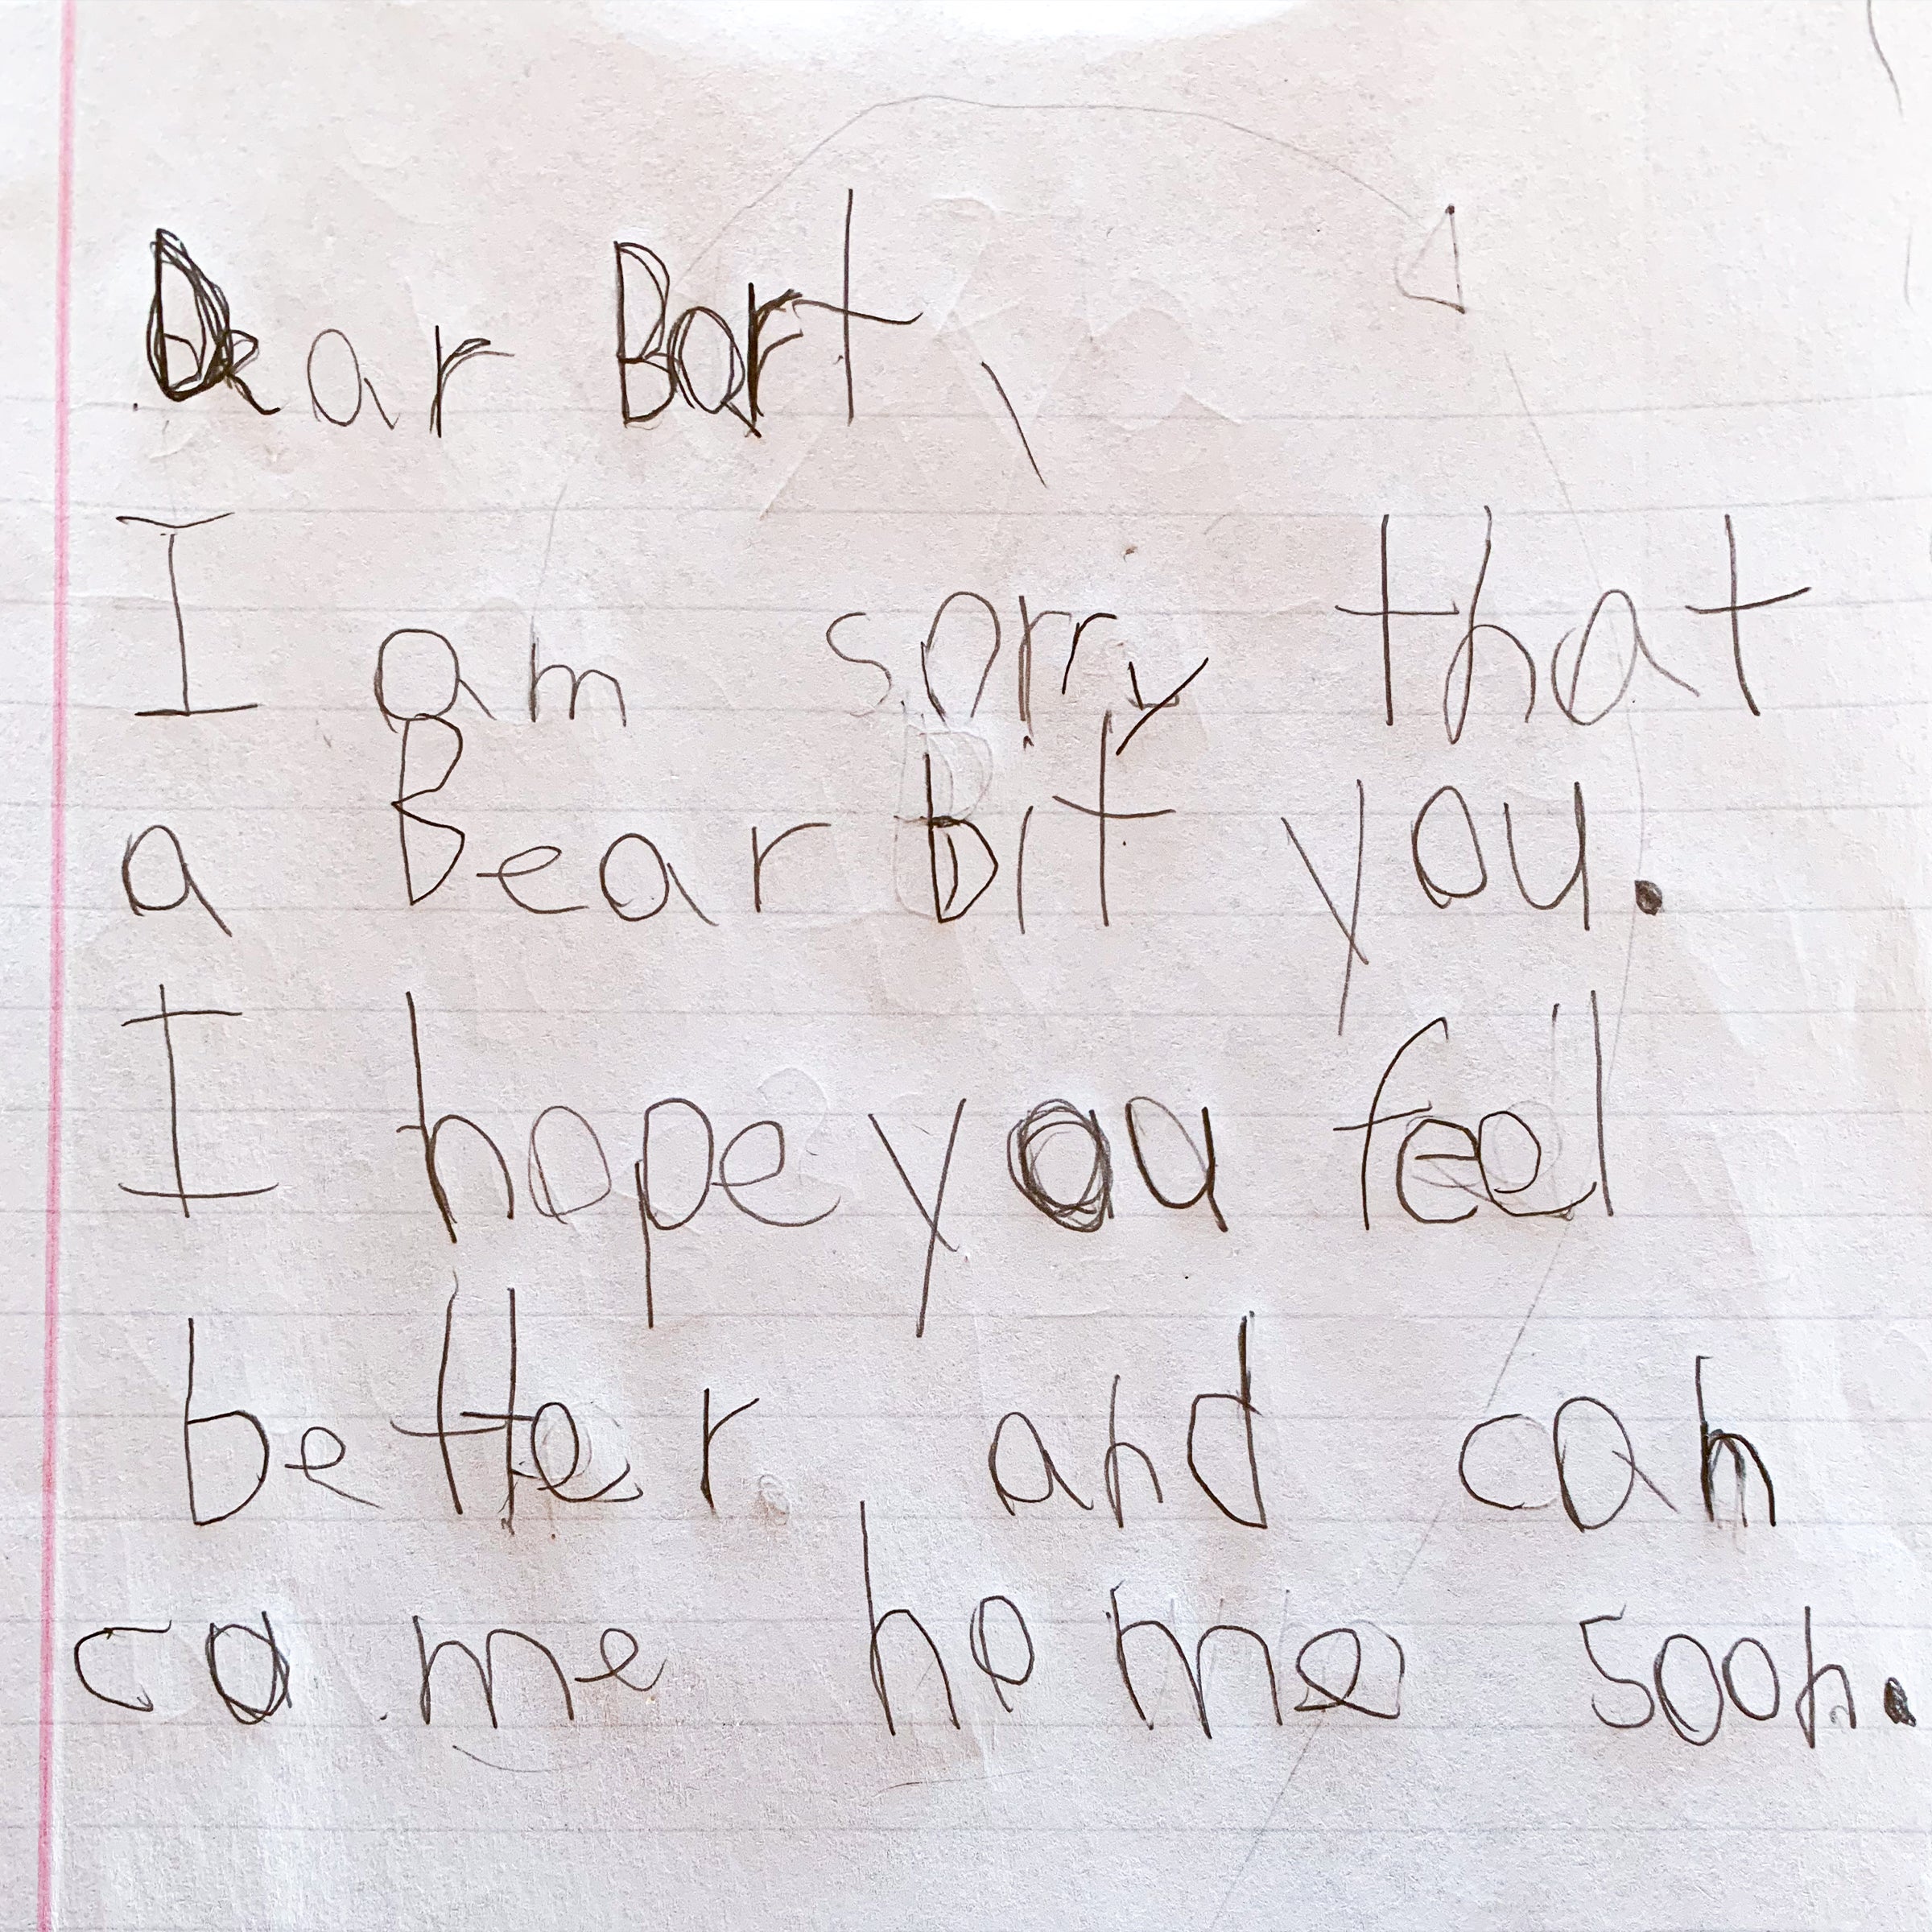 Dear Bart,
I am sorry that
a Bear Bit you.
I hope you feel
better and can
come home soon.